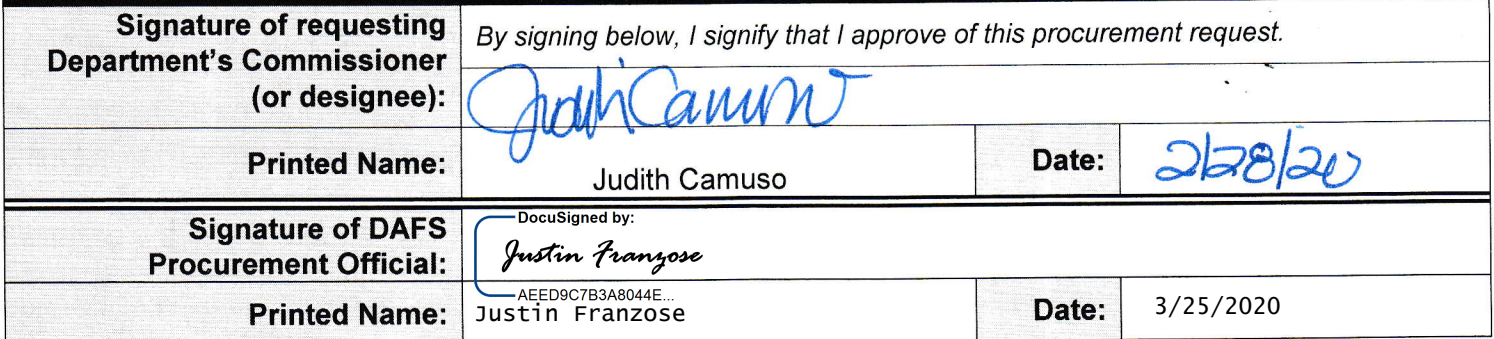 Signature of requesting
Department's Commissioner
(or designee):
By signing below, I signify that I approve of this procurement request.
Judith Camuso
Printed Name:
Judith Camuso
Date:
2/28/20
Signature of DAFS
Procurement Official:
DocuSigned by:
Justin Franzose
AEED9C7B3A8044E...
Printed Name:
Justin Franzose
Date:
3/25/2020